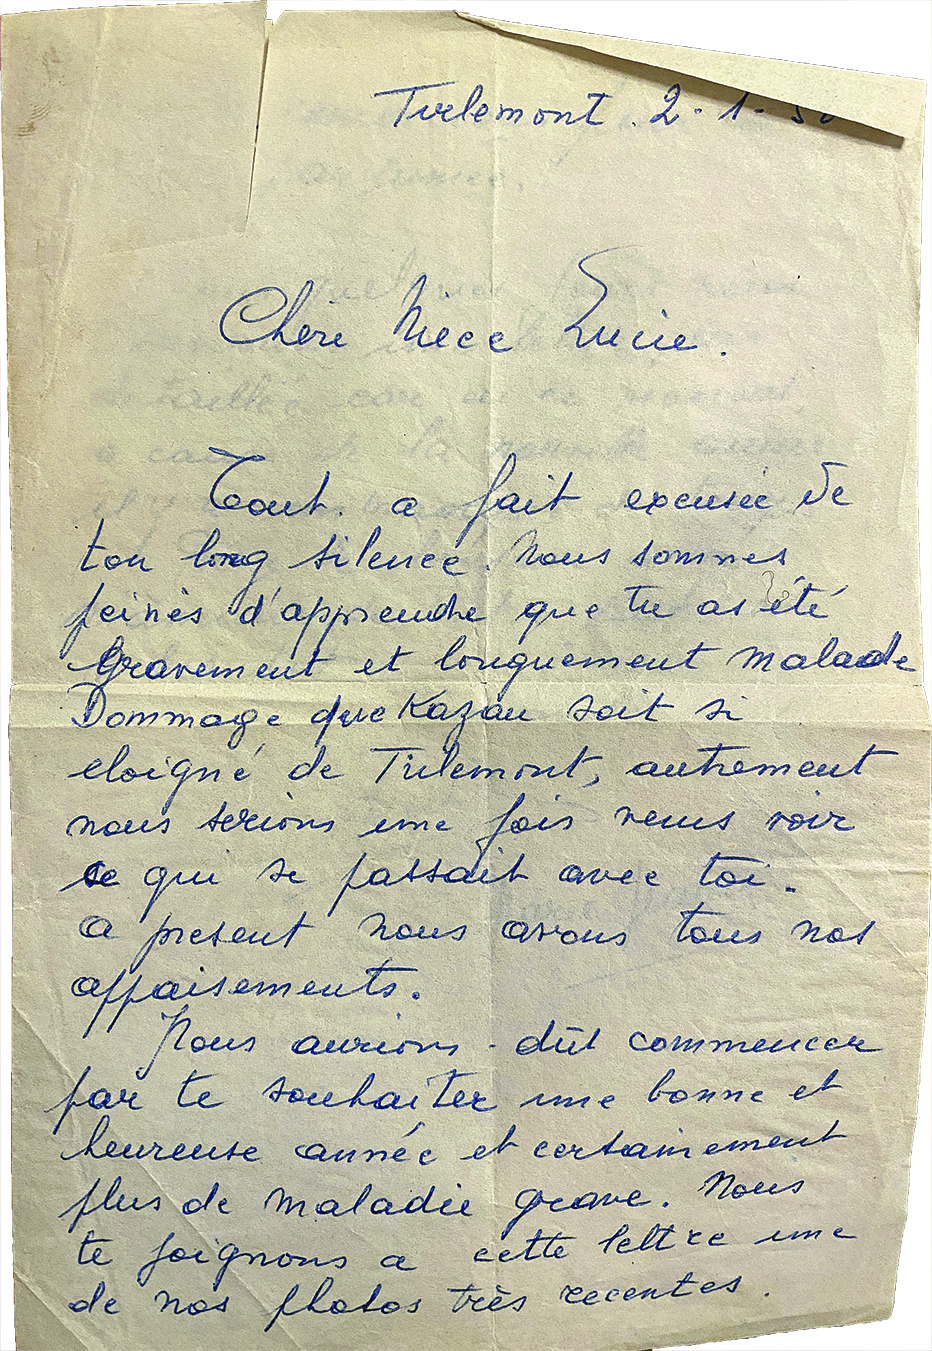 Tirlemont. 2-1-5
Chere Niece Lucie.
Tout. a fait excusée de
ton long silence. Nous sommes
peinès d'apprendre que tu as été
Gravement et longuement malade
Dommage que Kazan soit si
eloigné de Tirlemont, autrement
nous serions une fois venus voir
ce qui se passait avec toi.
a present nous avons tous nos
appaisements.
Nous aurions dût commencer
par te souhaiter une bonne et
heureuse année et certainement
plus de maladie grave. Nous
te joignons a cette lettre une
de nos photos très recentes.